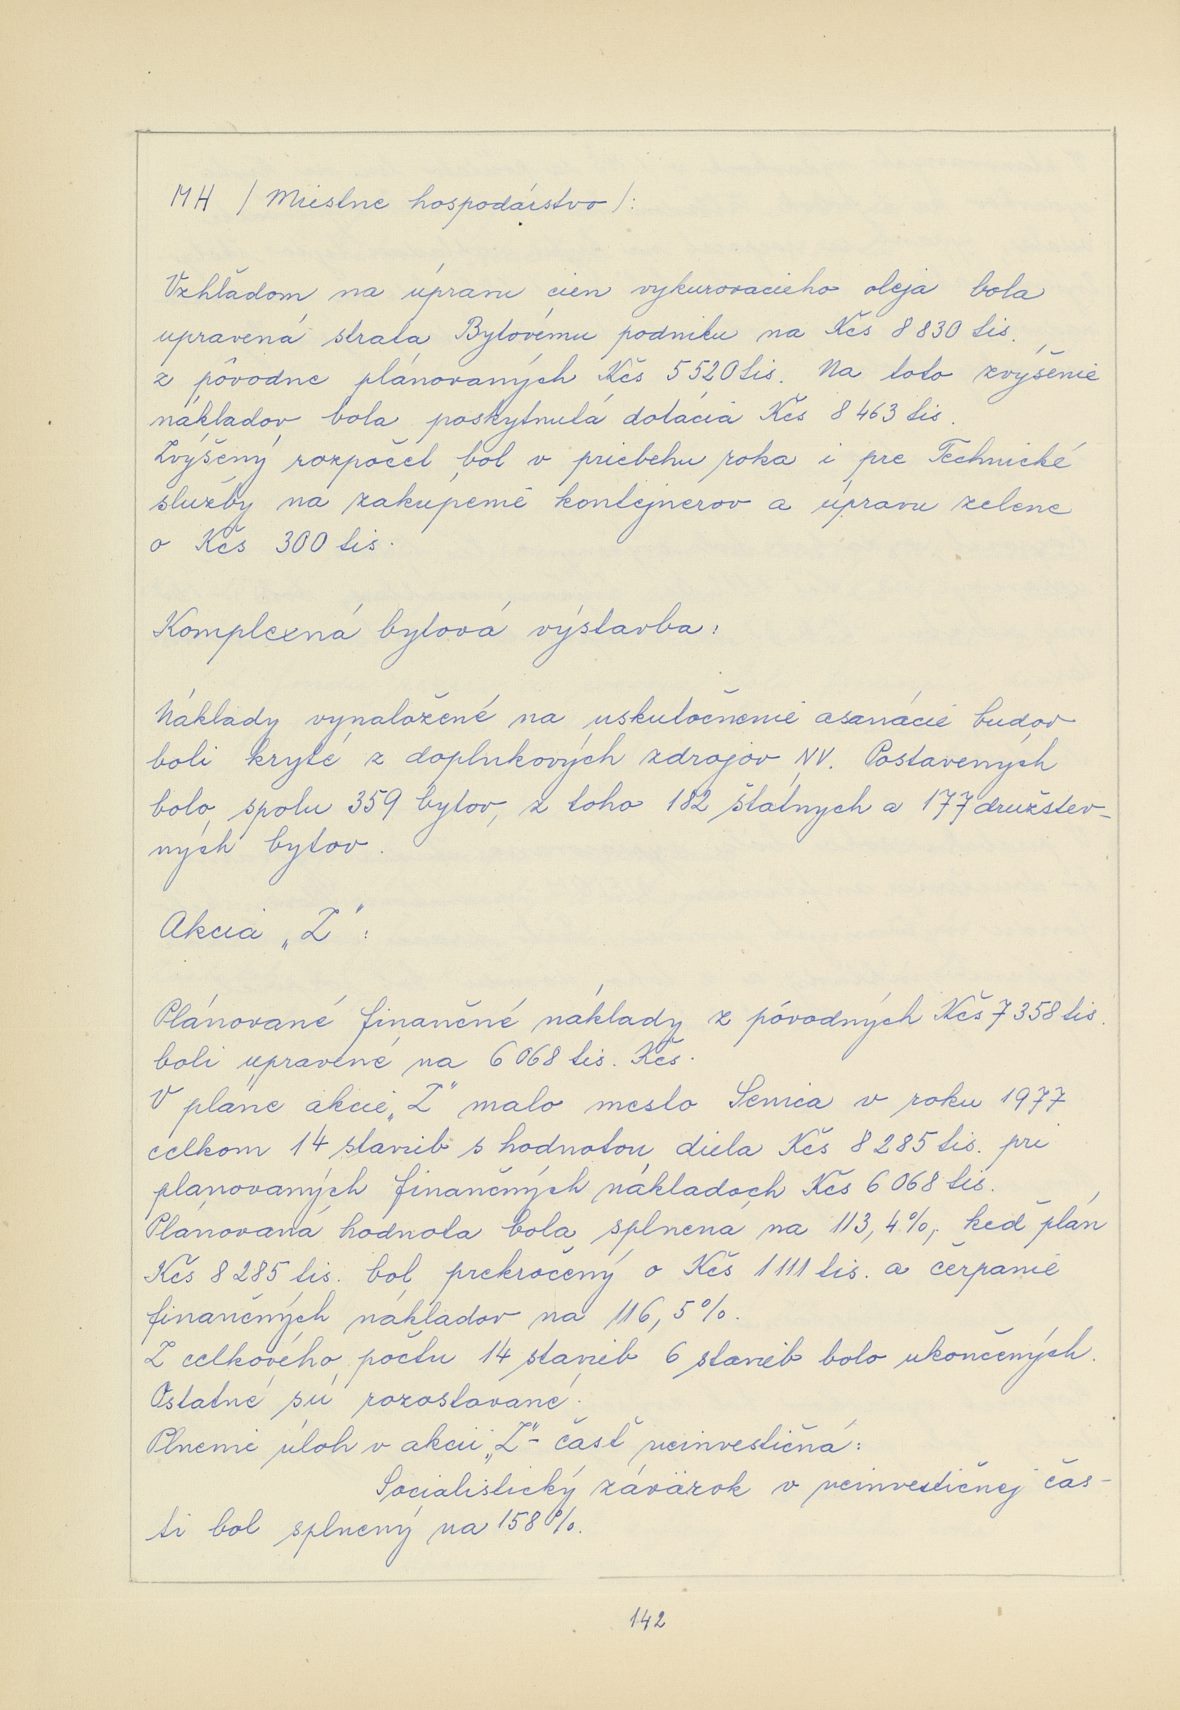 MH / Miestne hospodárstvo /:
Vzhľadom na úpravu cien vykurovacieho oleja bola
upravená strata Bytovému podniku na Kčs 8 830 tis.
z pôvodne plánovaných Kčs 5 520 tis. Na toto zvýšenie
nákladov bola poskytnutá dotácia Kčs 8 463 tis.
Zvýšený rozpočet bol v priebehu roka i pre Technické
služby na zakúpenie kontejnerov a úpravu zelene
o Kčs 300 tis.
Komplexná bytová výstavba:
Náklady vynaložené na uskutočnenie asanácie budov
boli kryté z doplnkových zdrojov NV. Postavených
bolo spolu 359 bytov, z toho 182 štátnych a 177 družstev-
ných bytov.
Akcia „Z":
Plánované finančné náklady z pôvodných Kčs 7 358 tis.
boli upravené na 6 068 tis. Kčs.
V pláne akcie „Z" malo mesto Senica v roku 1977
celkom 14 stavieb s hodnotou diela Kčs 8 285 tis. pri
plánovaných finančných nákladoch Kčs 6 068 tis.
Plánovaná hodnota bola splnená na 113,4%, keď plán
Kčs 8 285 tis. bol prekročený o Kčs 1 111 tis. a čerpanie
finančných nákladov na 116,5%.
Z celkového počtu 14 stavieb 6 stavieb bolo ukončených.
Ostatné sú rozostavané.
Plnenie úloh v akcii „Z" - časť neinvestičná:
Socialistický záväzok v neinvestičnej čas-
ti bol splnený na 158%.
142